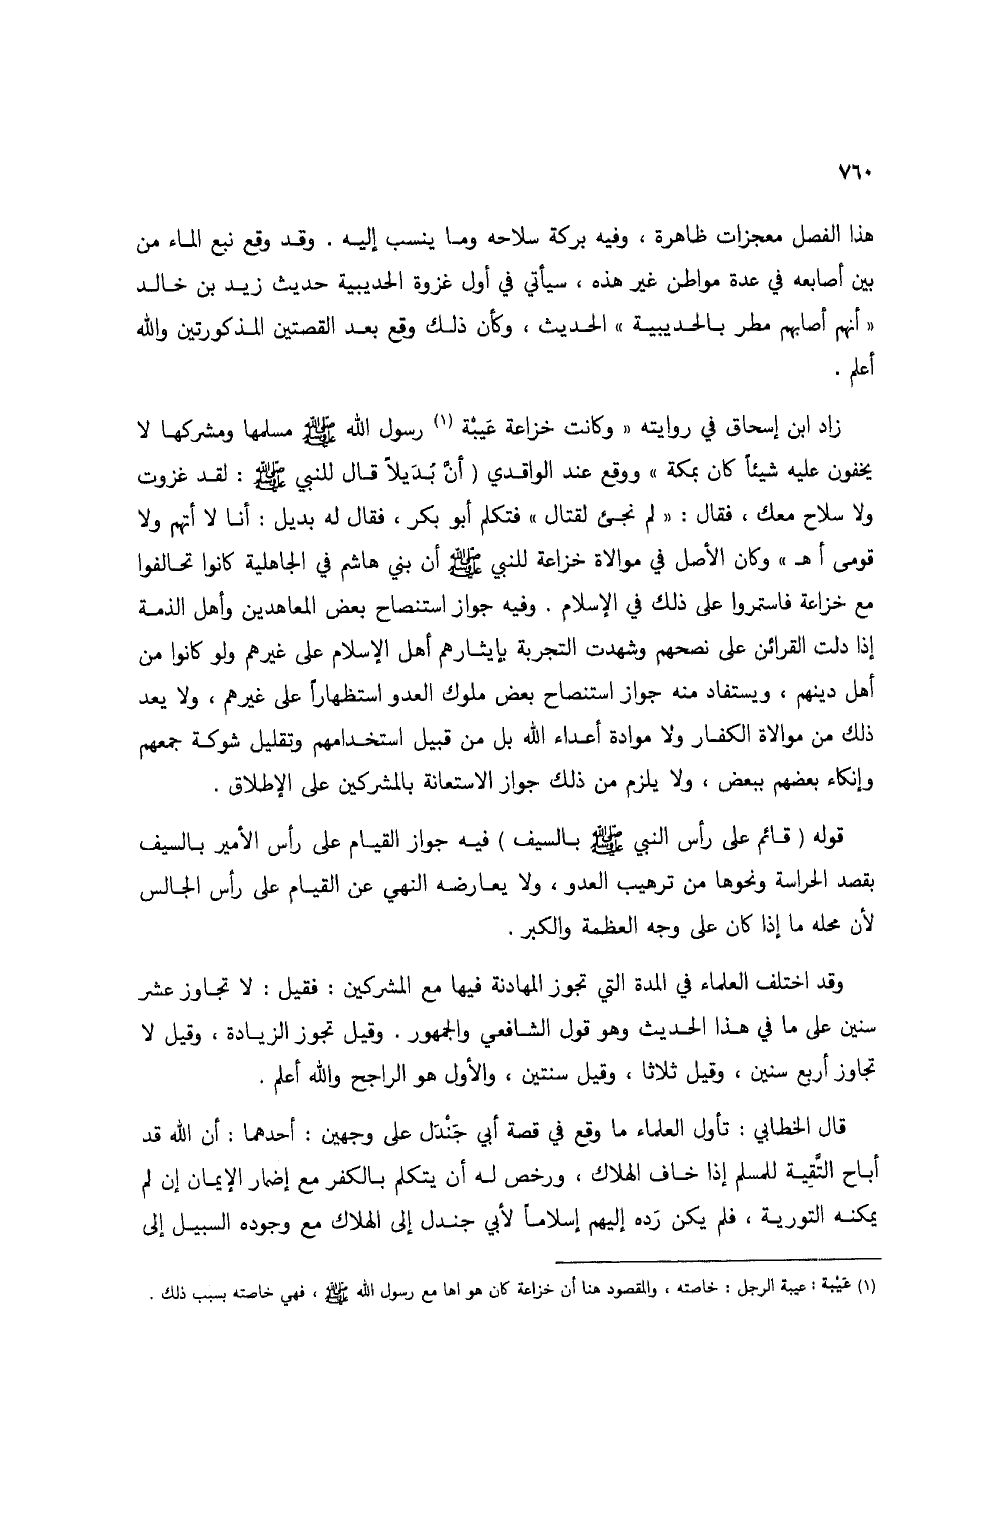 ٧٦٠
هذا الفصل معجزات ظاهرة ، وفيه بركة سلاحه وما ينسب إليه . وقد وقع نبع الماء من
بين أصابعه في عدة مواطن غير هذه ، سيأتي في أول غزوة الحديبية حديث زيد بن خالد
« أنهم أصابهم مطر بالحديبية » الحديث ، وكأن ذلك وقع بعد القصتين المذكورتين والله
أعلم .
زاد ابن إسحاق في روايته « وكانت خزاعة عَيبْة (١) رسول الله ﷺ مسلمها ومشركها لا
يخفون عليه شيئاً كان بمكة » ووقع عند الواقدي ( أنَّ بُدَيلاً قال للنبي ﷺ : لقد غزوت
ولا سلاح معك ، فقال : « لم نجئ لقتال » فتكلم أبو بكر ، فقال له بديل : أنا لا أتهم ولا
قومى أ هـ » وكان الأصل في موالاة خزاعة للنبي ﷺ أن بني هاشم في الجاهلية كانوا تحالفوا
مع خزاعة فاستمروا على ذلك في الإسلام . وفيه جواز استنصاح بعض المعاهدين وأهل الذمة
إذا دلت القرائن على نصحهم وشهدت التجربة بإيثارهم أهل الإسلام على غيرهم ولو كانوا من
أهل دينهم ، ويستفاد منه جواز استنصاح بعض ملوك العدو استظهاراً على غيرهم ، ولا يعد
ذلك من موالاة الكفار ولا موادة أعداء الله بل من قبيل استخدامهم وتقليل شوكة جمعهم
وإنكاء بعضهم ببعض ، ولا يلزم من ذلك جواز الاستعانة بالمشركين على الإطلاق .
قوله ( قائم على رأس النبي ﷺ بالسيف ) فيه جواز القيام على رأس الأمير بالسيف
بقصد الحراسة ونحوها من ترهيب العدو ، ولا يعارضه النهي عن القيام على رأس الجالس
لأن محله ما إذا كان على وجه العظمة والكبر .
وقد اختلف العلماء في المدة التي تجوز المهادنة فيها مع المشركين : فقيل : لا تجاوز عشر
سنين على ما في هذا الحديث وهو قول الشافعي والجمهور . وقيل تجوز الزيادة ، وقيل لا
تجاوز أربع سنين ، وقيل ثلاثا ، وقيل سنتين ، والأول هو الراجح والله أعلم .
قال الخطابي : تأول العلماء ما وقع في قصة أبي جَنْدَل على وجهين : أحدهما : أن الله قد
أباح التَّقِية للمسلم إذا خاف الهلاك ، ورخص له أن يتكلم بالكفر مع إضمار الإيمان إن لم
يمكنه التورية ، فلم يكن رَده إليهم إسلاماً لأبي جندل إلى الهلاك مع وجوده السبيل إلى
(١) عَيْبَة : عيبة الرجل : خاصته ، والمقصود هنا أن خزاعة كان هو اها مع رسول الله ﷺ ، فهي خاصته بسبب ذلك .